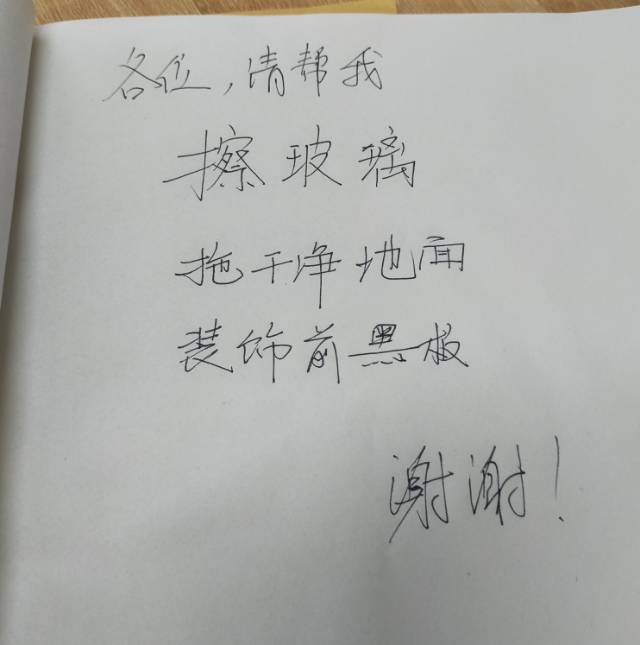 各位，请帮我
擦玻璃
拖干净地面
装饰前黑板
谢谢！